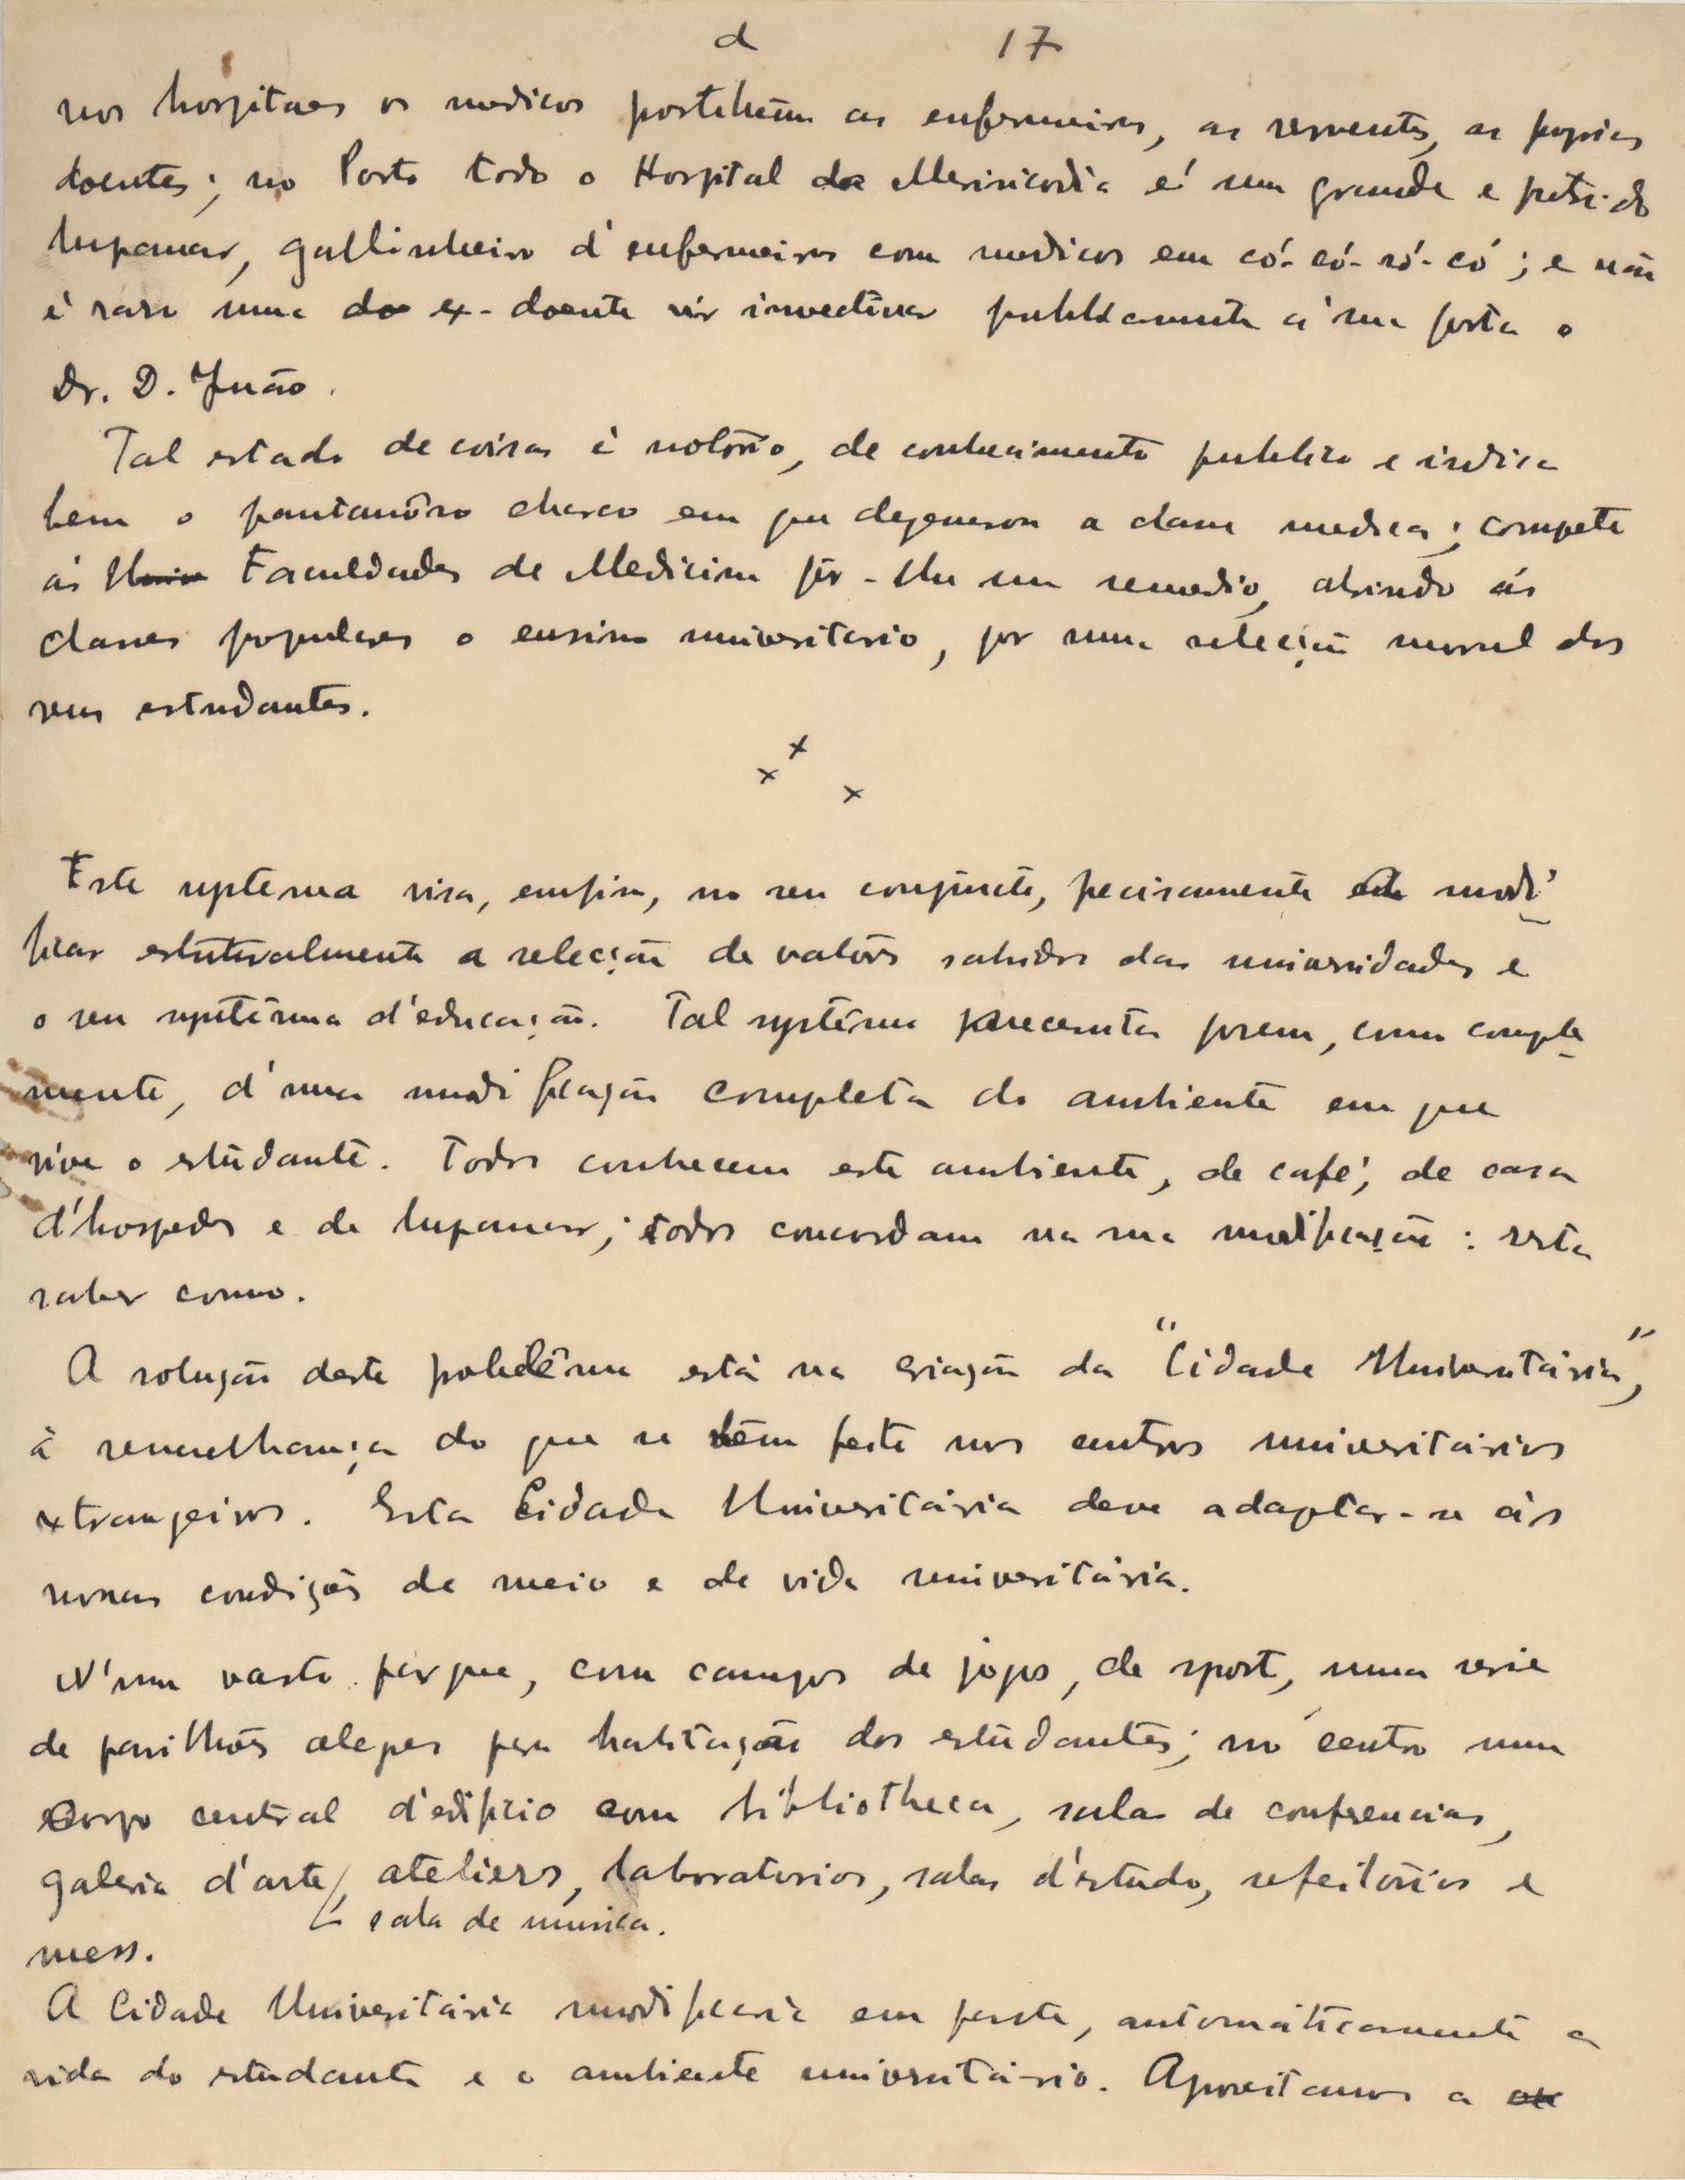 d 17
nos hospitaes os medicos postitúem as enfermeiras, as serventes, as proprias
doentes; no Porto todo o Hospital da Misericordia é um grande e putrido
lupanar, gallinheiro d'enfermeiras com medicos em có-có-ró-có; e não
é raro uma ex-doente vir invectivar publicamente á sua porta o
Dr. D. Juão.
Tal estado de coisas é notório, de conhecimento publico e indica
bem o pantanôso charco em que degenerou a classe medica; compete
ás Faculdades de Medicina pôr-lhe um remedio, abrindo ás
classes populares o ensino universitario, por uma seleção moral dos
seus estudantes.
x x x
Este systema visa, emfim, no seu conjuncto, precisamente modi-
ficar estruturalmente a selecção de valôres sahidos das universidades e
o seu systêma d'educação. Tal systêma precisa porem, como comple-
mento, d'uma modificação completa do ambiente em que
vive o estudante. Todos conhecem este ambiente, de café, de casa
d'hospedes e de lupanar; todos concordam na sua modificação: resta
saber como.
A solução deste problêma está na criação da "Cidade Universitária",
à semelhança do que se tem feito nos centros universitários
extrangeiros. Esta Cidade Universitária deve adaptar-se ás
nossas condições de meio e de vida universitária.
N'um vasto parque, com campos de jogos, de sport, uma serie
de pavilhões alegres para habitação dos estudantes; no centro num
corpo central d'edificio com bibliotheca, salas de conferencias,
galeria d'arte, ateliers, laboratorios, salas d'estudo, refeitórios e
sala de musica.
mess.
A Cidade Universitária modificaria em parte, automáticamente a
vida do estudante e o ambiente universitário. Aproveitamos a